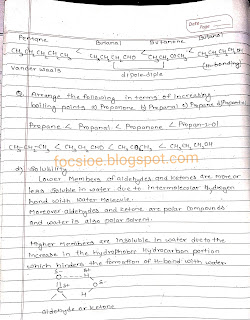 Date
Page
Pentane Butanal Butanone Butanol
CH3CH2CH2CH2CH3 < CH3CH2CH2CHO < CH3CH2COCH3 < CH3CH2CH2CH2OH
vander waals dipole-diple (H-bonding)
Q. Arrange the following in terms of increasing
boiling points 1) Propanone 2) Propanal 3) Propane 4) Propanol
Propane < Propanal < Propanone < Propan-1-ol
CH3-CH2-CH3 < CH3CH2CHO < CH3COCH3 < CH3CH2CH2OH
focsioe.blogspot.com
d) Solubility
Lower Members of aldehydes and ketones are more or
less soluble in water due to intermolecular Hydrogen
bond with water Molecule.
Moreover aldehydes and ketone are polar compounds
and water is also polar solvent.
Higher members are insoluble in water due to the
increase in the hydrophobic Hydrocarbon portion
which hinders the formation of H-bond with water.
Aldehyde or Ketone